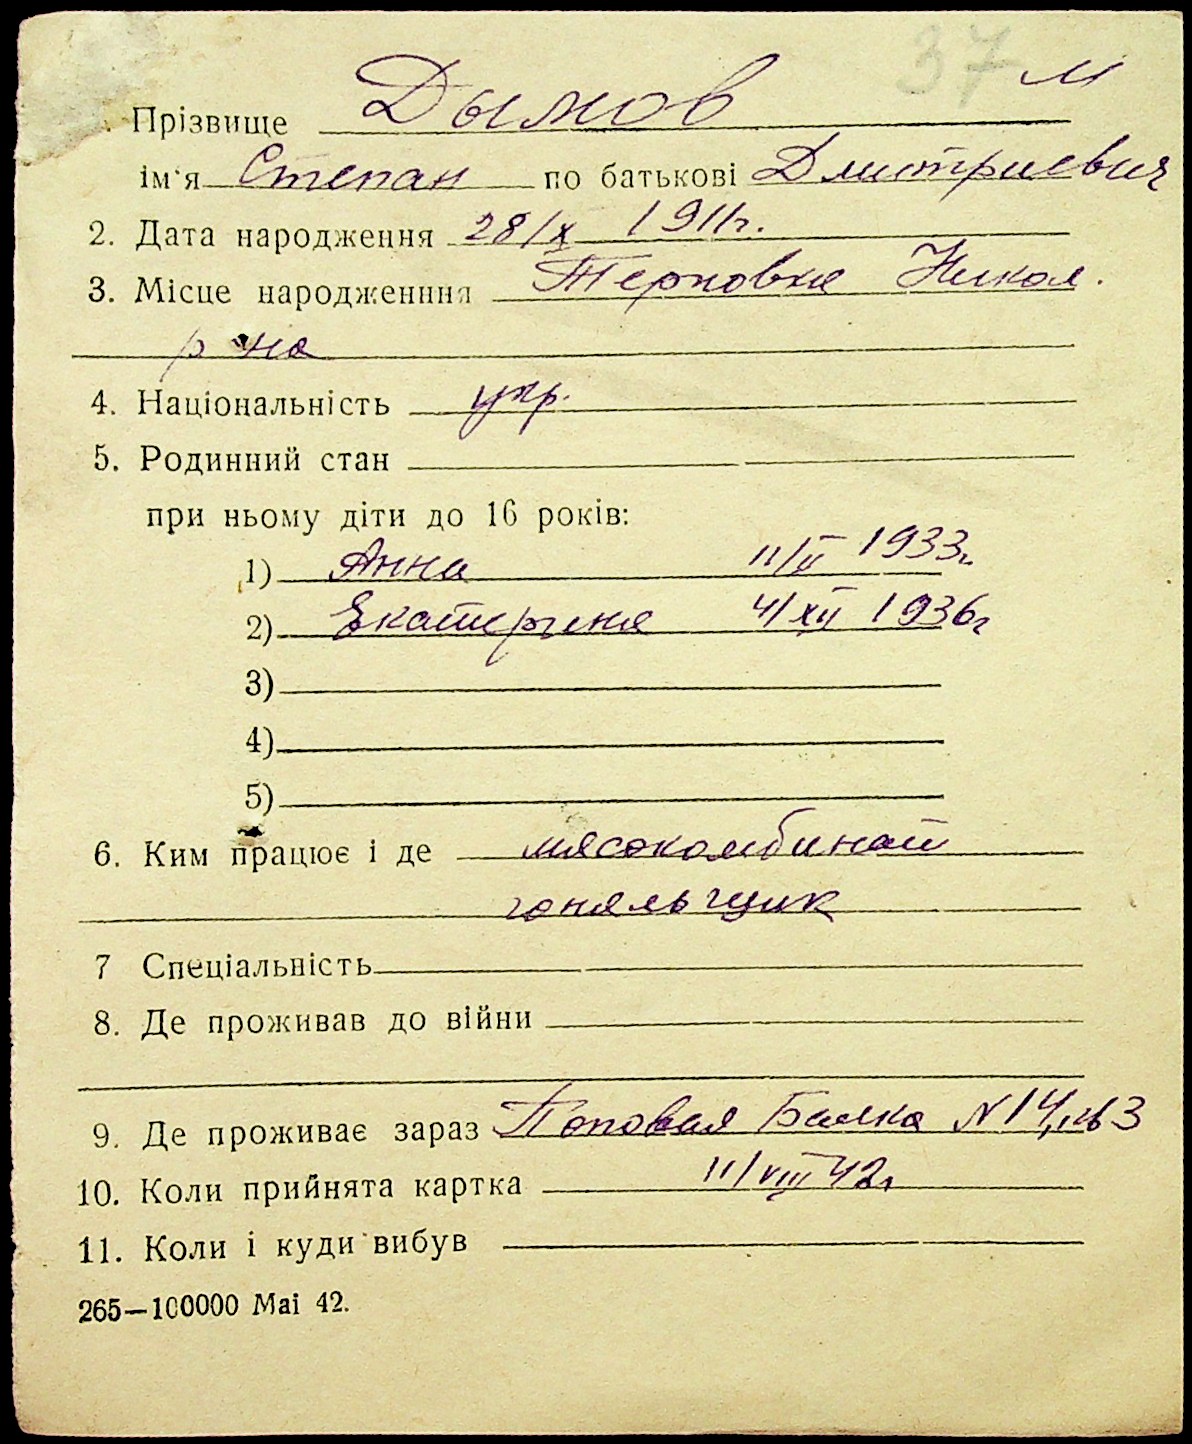 37 м
Прізвище Дымов
ім'я Степан по батькові Дмитриевич
2. Дата народження 28/X 1911г.
3. Місце народженння Терновка Никол.
р на
4. Національність укр.
5. Родинний стан
при ньому діти до 16 років:
1) Анна 11/II 1933г.
2) Екатерина 4/XII 1936г
3)
4)
5)
6. Ким працює і де мясокомбинат
гоняльщик
7 Спеціальність
8. Де проживав до війни
9. Де проживає зараз Поповая Балка N 14, кв 3
10. Коли прийнята картка 11/VIII 42г
11. Коли і куди вибув
265—100000 Mai 42.